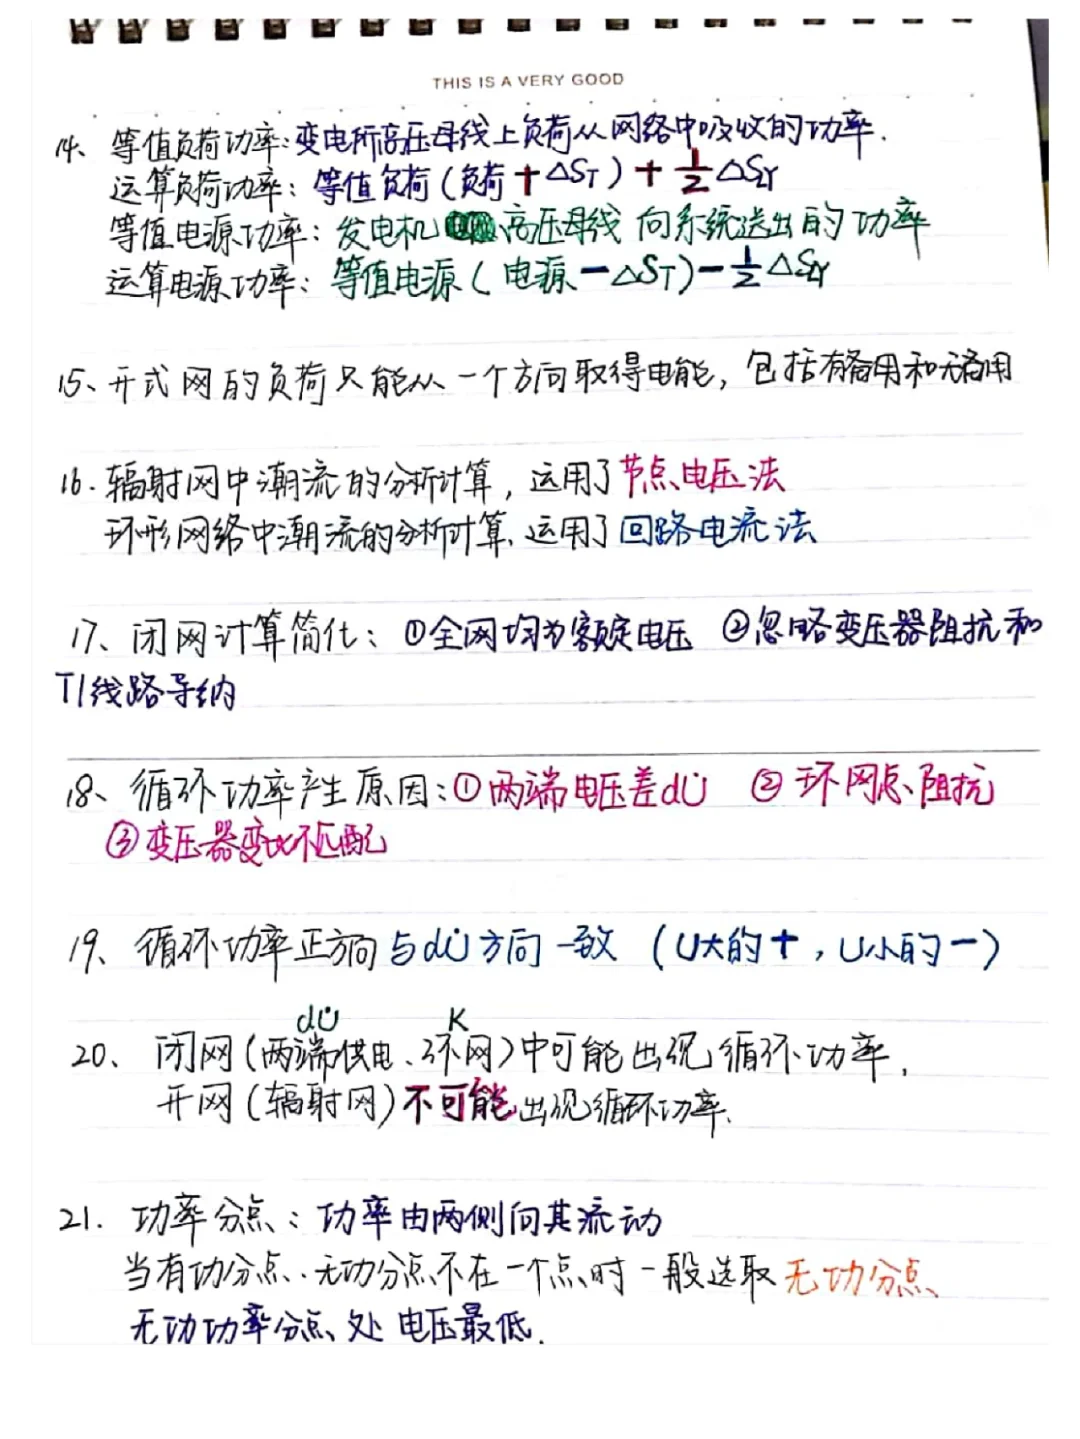 THIS IS A VERY GOOD
14、等值负荷功率:变电所高压母线上负荷从网络中吸收的功率.
运算负荷功率：等值负荷(负荷+△S_T)+½△S_ZY
等值电源功率：发电机 高压母线 向系统送出的功率
运算电源功率：等值电源(电源-△S_T)-½△S_ZY
15、开式网的负荷只能从一个方向取得电能，包括有备用和无备用
16.辐射网中潮流的分析计算，运用了节点电压法
环形网络中潮流的分析计算、运用了回路电流法
17、闭网计算简化：①全网均为额定电压 ②忽略变压器阻抗和
T1线路导纳
18、循环功率产生原因:①两端电压差dU̇ ②环网总阻抗
③变压器变比不匹配
19、循环功率正方向与dU̇方向一致（U大的+，U小的-）
dU̇ K
20、闭网(两端供电、环网)中可能出现循环功率，
开网(辐射网)不可能出现循环功率.
21.功率分点：功率由两侧向其流动
当有功分点、无功分点不在一个点时一般选取无功分点、
无功功率分点处电压最低.